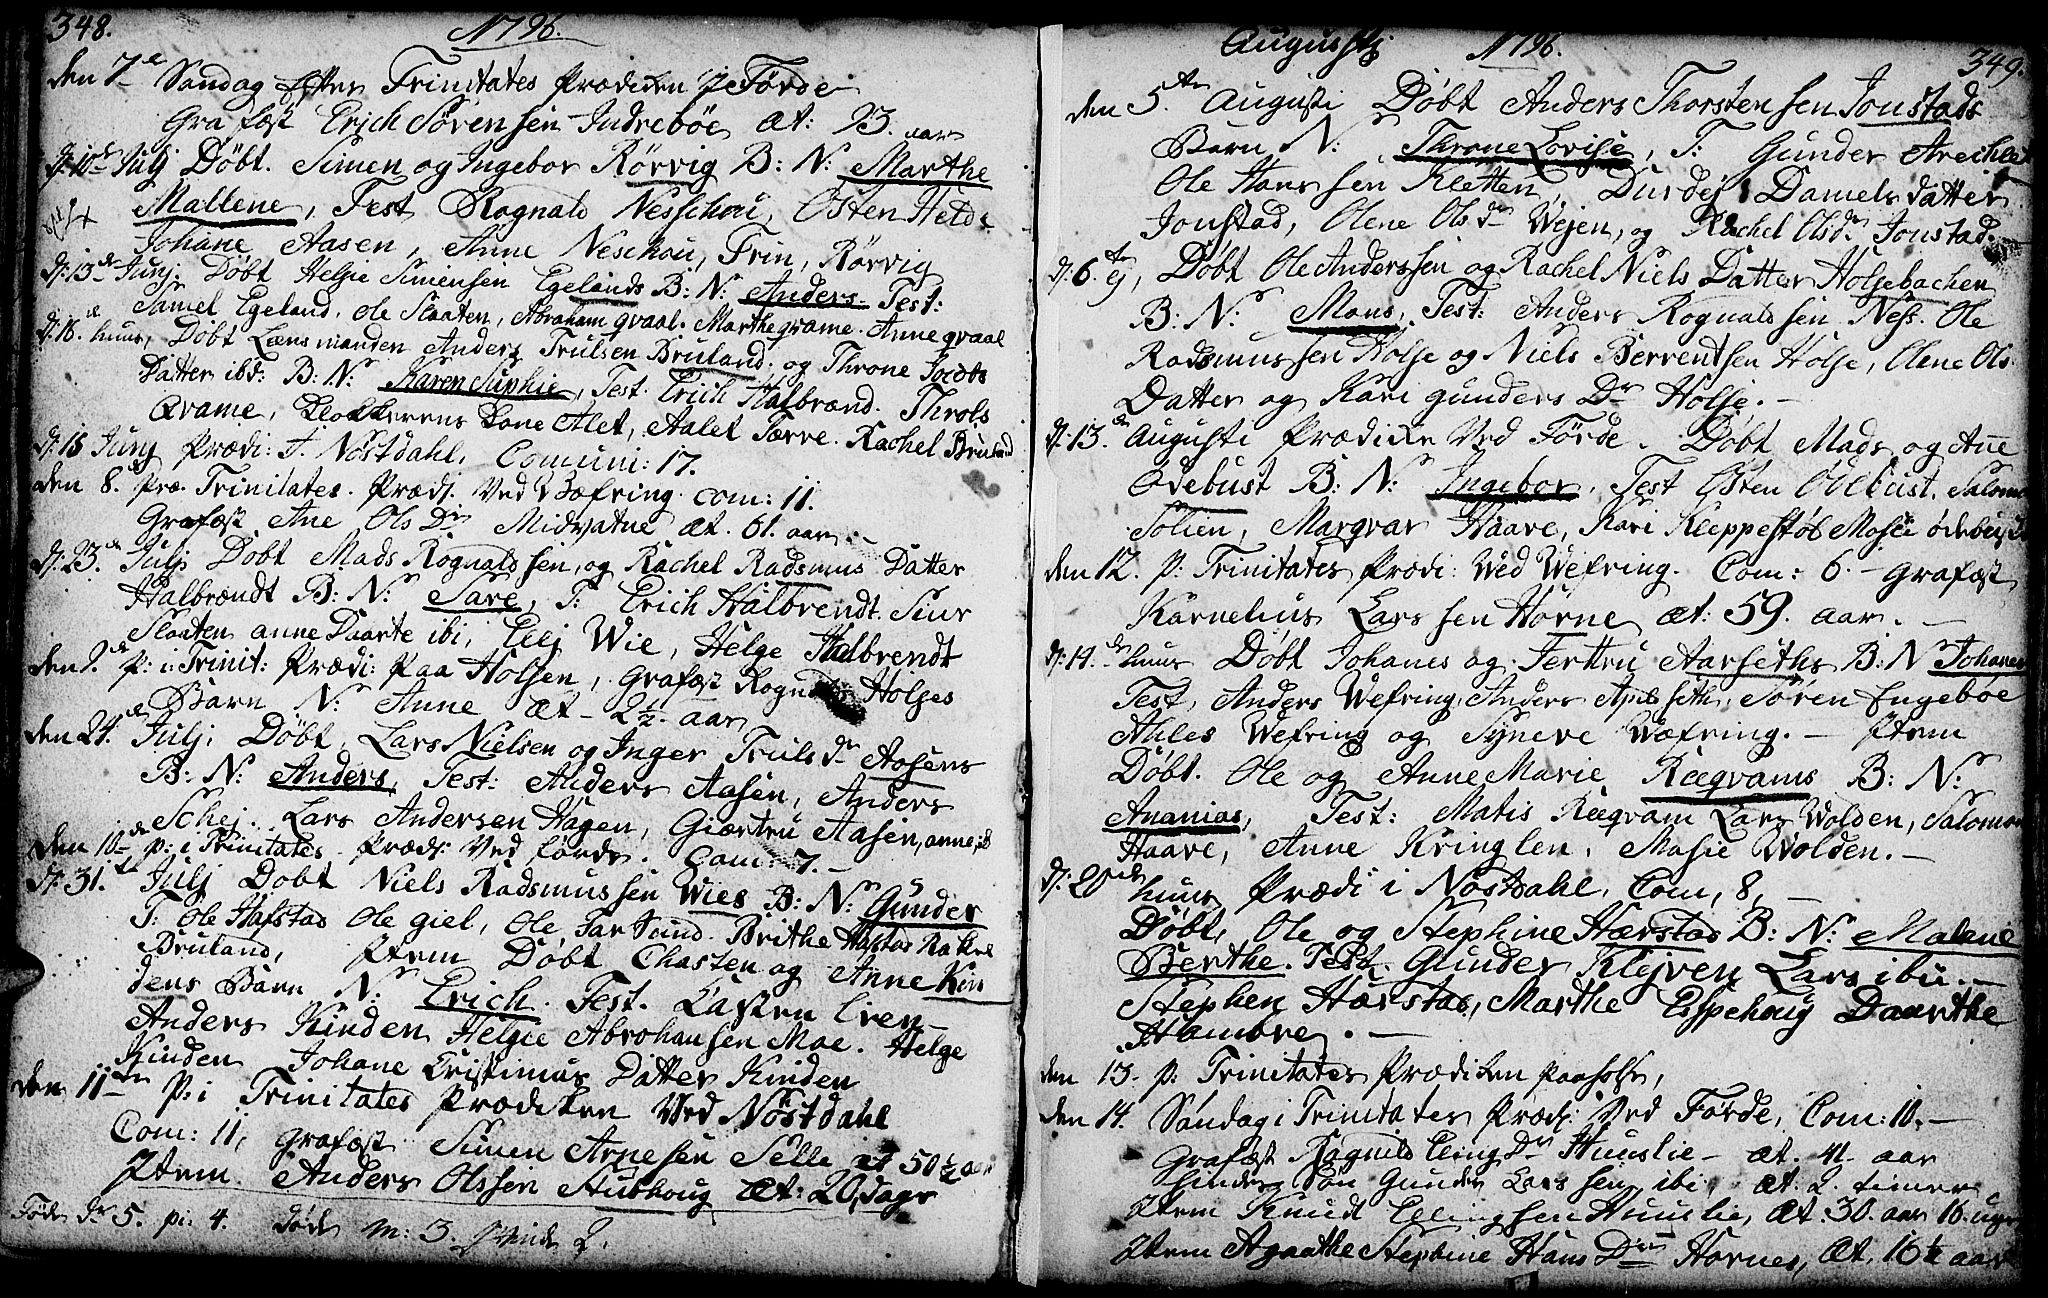 348. 1796.
den 7de Søndag Efter Trinitates Prædiken i Førde
Grafæst Erich Sørensen Indrebøe æt: 93. aar
D: 10de Julj Døbt. Simen og Ingebor Rørvig B: N: Marthe
Mallene, Test Rognald Nesschou, Østen Helde
Johane Aasen, Anne Neschou, Trin, Rørvig
D: 13de Junj. Døbt Helgie Simensen Egelands B: N: Anders. Test:
Samel Egeland, Ole Slaaten, Abraham qvaal. Marthe qvame. Anne qvaal
D: 16. huus, Døbt Lænsmanden Anders Trulsen Bruland. og Throne Jocobs
Datter ibd: B: N: Karen Suphie, Test. Erich Halbrænd. Throls
Qvame, Klokkerens Kone Alet, Aalet Tærre. Rachel Bruland
D: 15 Junj Prædi: i Nøstdahl. Comuni: 17.
den 8. Pr. Trinitates. Prædi. Ved Wæfring. Com: 11.
Grafæst Ane Ols Dr Midvatne æt. 61. aar. -
D: 23. de Julj Døbt Mads Rognaldsen, og Rachel Radsmus Datter
Halbrændt B: N: Sare, T: Erich Halbrendt. Siur
Slaaten anne Daarte ibi, Elij Wie, Helge Halbrendt
den 9de P: i Trinit: Prædi: Paa Holsen, Grafæst Rognals Holses
Barn N: Anne æt - 2½. aar
den 24. de Julj. Døbt Lars Nielsen og Inger Truls dr Aasens
B: N: Anders, Test: Anders Aasen, Anders
Schej. Lars Andersen Hagen, Giærtru Aasen, anne ib
den 10de P: i Trinitates Prædi: Ved førde. Com: 7. -
D: 31. te Julj Døbt Niels Radsmussen Wies B: N: Gunder
T: Ole Hafstad Ole giel, Ole Farsund. Brithe Hafstad Rakel
Bruland, Item Døbt Chasten og Anne Kin
dens Barn N: Erich. Test. Casten Eren
Anders Kinden Helgie Abrohamsen Moe. Helge
Kinden Johane Cristinus Datter Kinden
den 11te P: i Trinitates Prædiken Ved Nøstdahl
Com: 11, Grafæst Simen Arnesen Selle æt 50½ aar
Item Anders Olssen Stubhoug æt: 20, Dage
Føde dr 5. pi: 4. døde m: 3. qvinde 2.
Augustj 1796. 349.
den 5. ten Augusti Døbt Anders Thorstensen Jonstads
Barn N: Throne Lovise, T: Gunder
Ole Hanssen Kletten Durdej Damels datter
Jonstad, Olene Ols dr Wejen, og Rachel Olsdr Jonstad.
D: 6. te ej, Døbt Ole Anderssen og Rachel Niels Datter Holsebachen
B: N: Mons, Test: Anders Rognaldsen Ness. Ole
Radsmussen Holse og Niels Berrentsen Holse, Olene Ols
Datter og Kari gunders Dr Holse. -
D: 13. de Augusti Prædiken Ved Førde. Døbt Mads og Ane
Ødebust B: N: Ingebor, Test Østen Ødebust, Salomon
Solien, Margvar Haave, Kari Kleppestøl Mosie ødebust
den 12. P: Trinitates Prædi: Wed Wefring. Com: 6. - Grafæst
Karnelius Larssen Horne æt: 59. aar. -
D: 14. de huus Døbt Johanes og Jerttru Aarseths B: N Johanes
Test, Anders Wefring, Anders Apelseth, Søren Engebøe
Ahles Wefring og Syneve Wæfring. - Item
Døbt. Ole og Anne Marie Reeqvams B: N:
Ananias, Test: Matis Reeqvam Lars Wolden, Salomon
Haave, Anne Kringlen, Masie Wolden. -
D: 20 de huus Prædi i Nøstdahl, Com, 8,
Døbt, Ole og Stephine Hærstad B: N: Malene
Berthe. Test. Gunder Klejven Lars ibu. -
Stephen Hærstad, Marthe Espehoug Daarthe
Hambre. -
den 13. P: Trinitates Prædiken paa holse,
den 14. Søndag i Trinitates Prædi: Ved Førde, Com: 10. -
Grafæst Ragnild Eling Dr Hunslie - æt. 41. aar
hindes Søn Gunder Larssen ibi, æt. 2. timer
Item Knud Ellingsen Hunslie, æt. 30. aar 16. uger
Item Agaathe Stephine Hans Dr Hornes, æt. 16½ aar